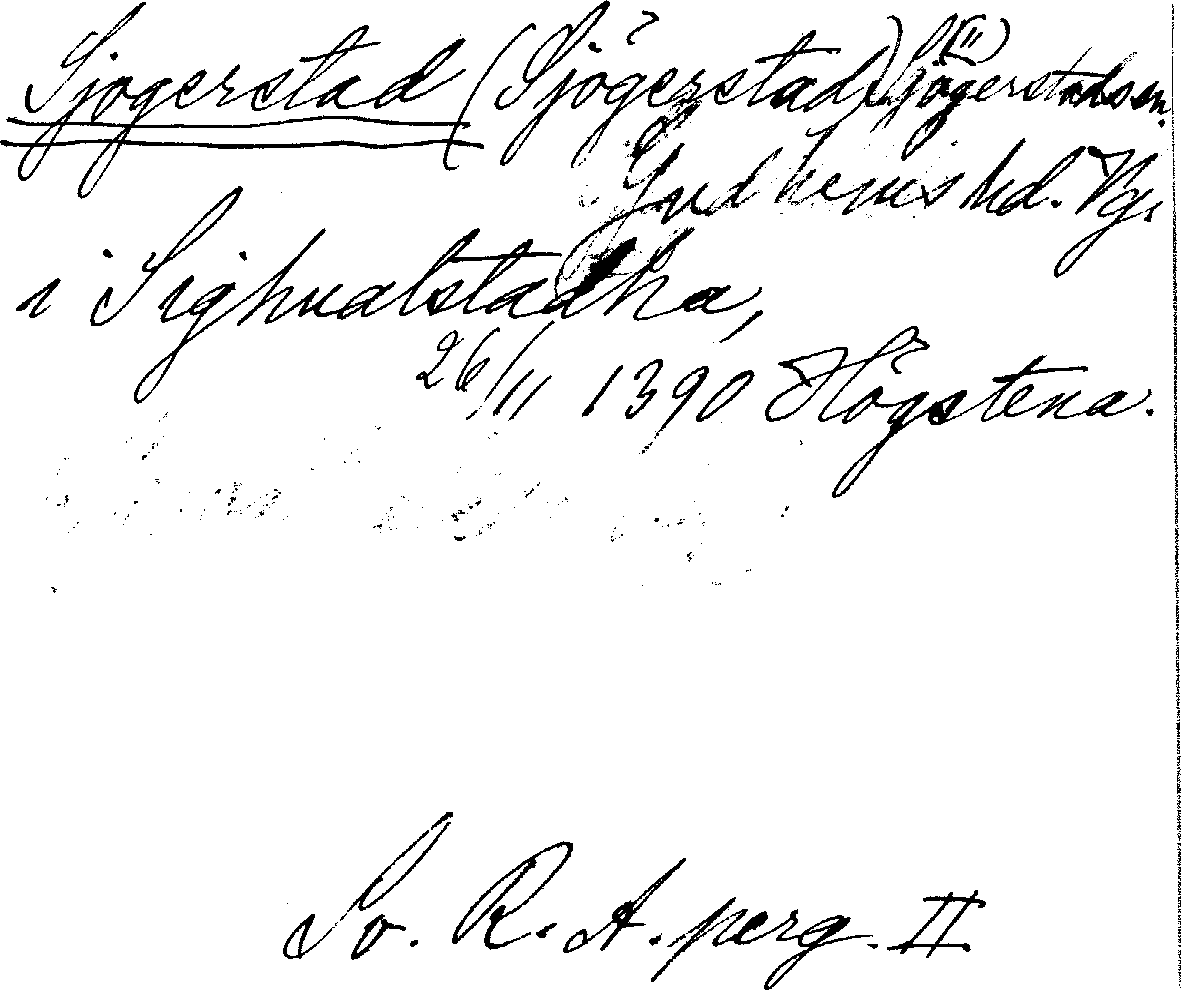 Sjogerstad (Sjögerstad) Sjögerstads sn.
(")
Gudhems hd. Vg.
i Sighualstadha,
26/11 1390 Högstena.
Sv. R. A. perg. II